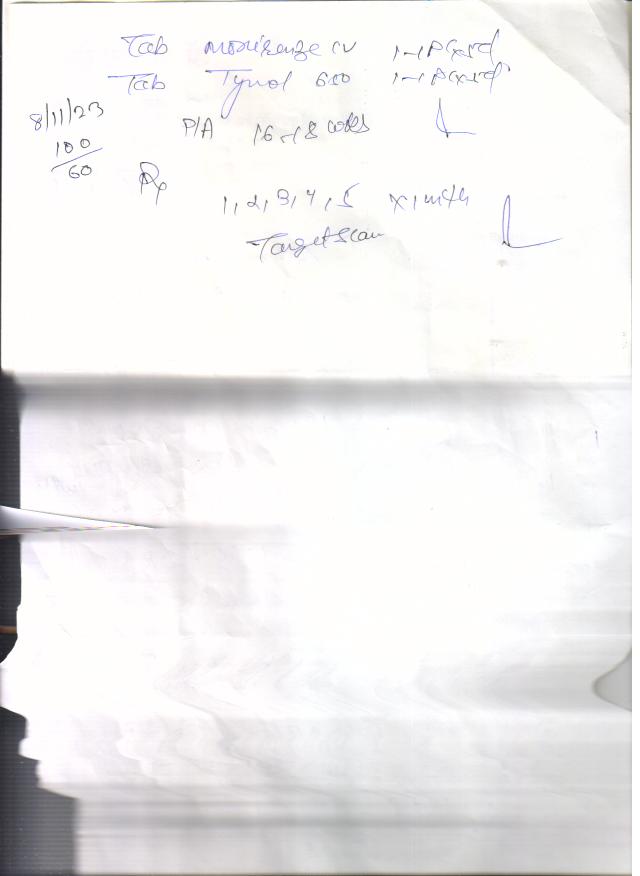 Tab CV 1-1 P.C x 5d
Tab Tynol 650 1-1 P.C x 5d
8/11/23
100/60
P/A 16-18 weeks
Rx
1, 2, 3, 4, 5 x 1 mth
Target Scan